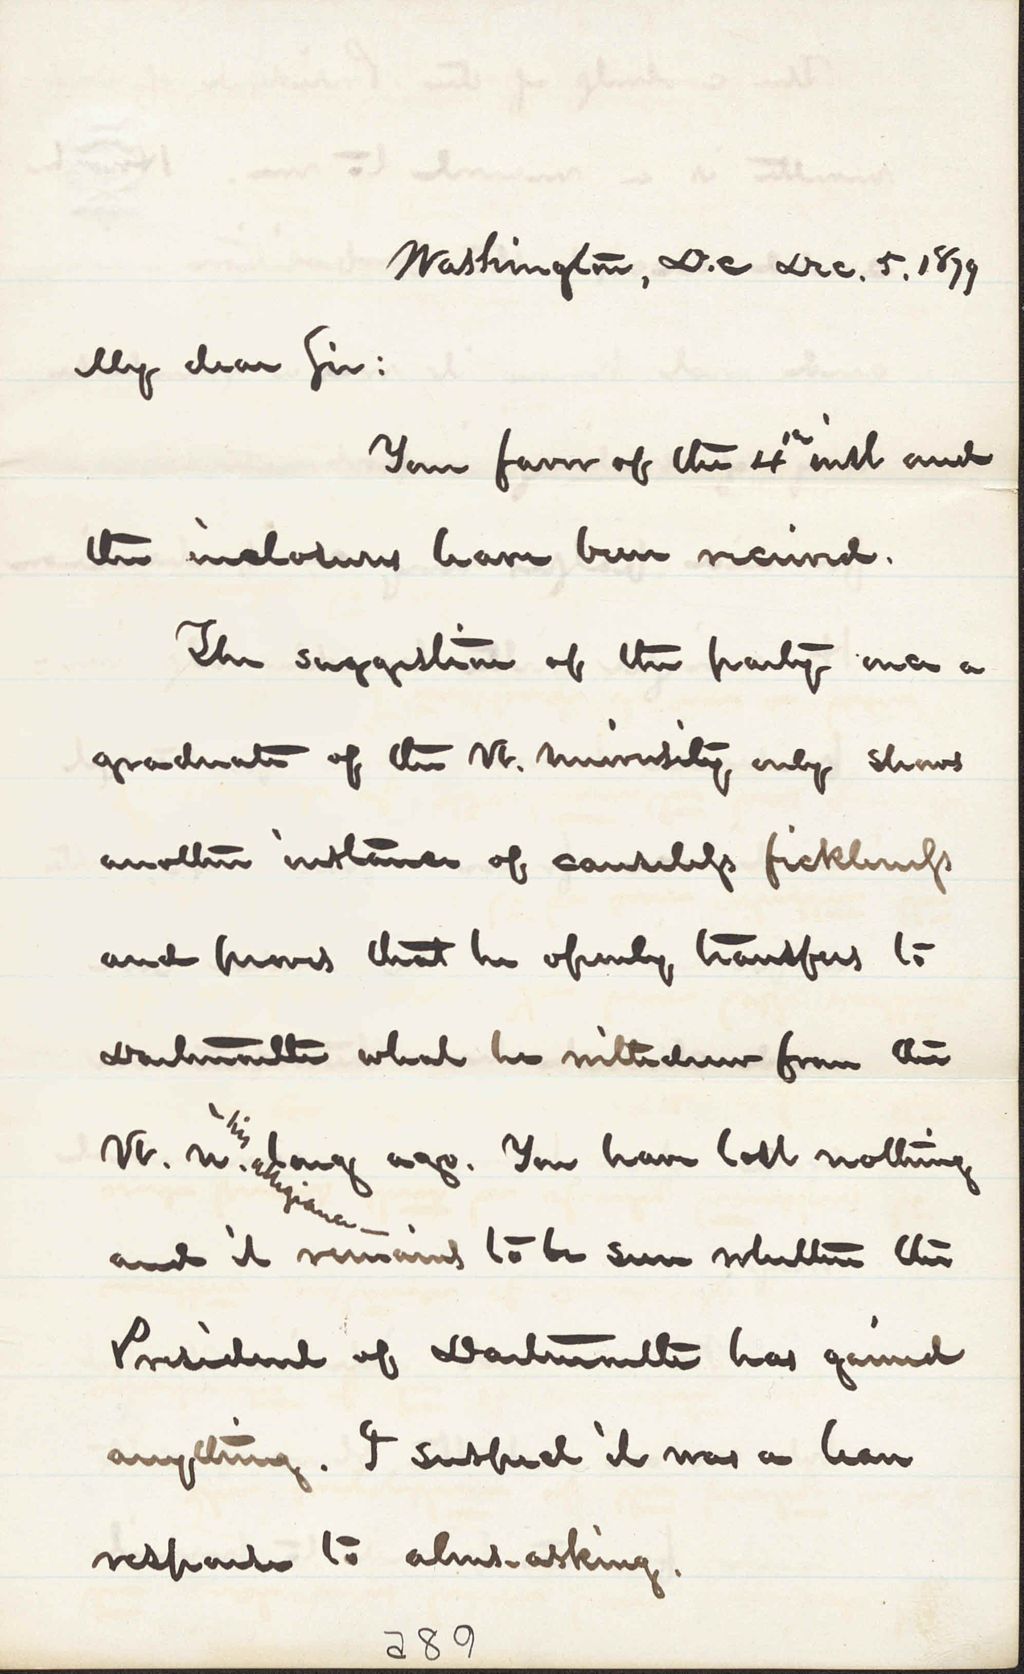 Washington, D.C Dec. 5. 1879
My dear Sir:
Your favor of the 4th inst and
the inclosures have been received.
The suggestion of the party once a
graduate of the Vt. University, only shows
another instance of causeless fickleness
and proves that he openly transfers to
Dartmouth what he withdrew from the
Vt. U. long ago. You have lost nothing
his allegiance—
and it remains to be seen whether the
President of Dartmouth has gained
anything. I suspect it was a lean
response to alms-asking.
289